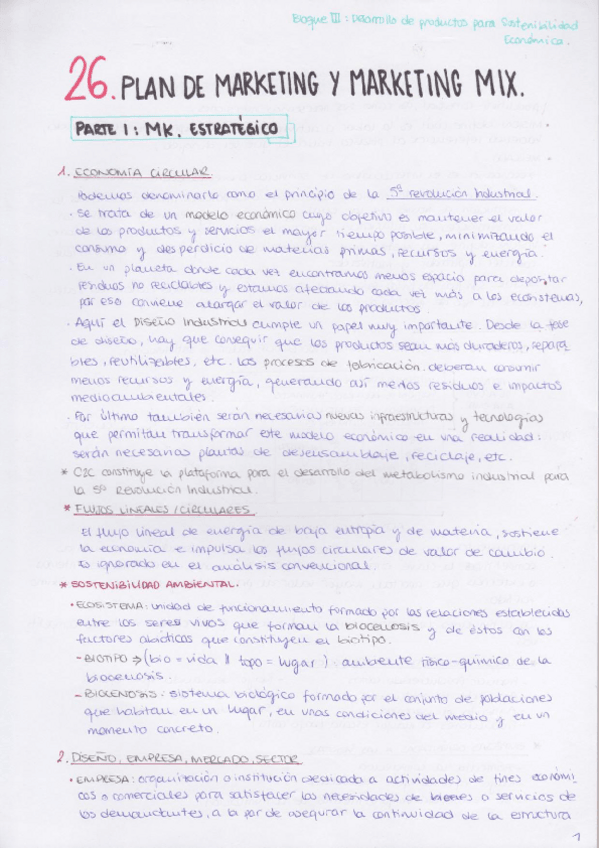 Bloque III: Desarrollo de productos para Sostenibilidad
Económica.
26. PLAN DE MARKETING Y MARKETING MIX.
PARTE I: MK. ESTRATÉGICO
1. ECONOMÍA CIRCULAR
Podemos denominarlo como el principio de la 5ª revolución Industrial.
· Se trata de un modelo económico cuyo objetivo es mantener el valor
de los productos y servicios el mayor tiempo posible, minimizando el
consumo y desperdicio de materias primas, recursos y energía.
· En un planeta donde cada vez encontramos menos espacio para depositar
residuos no reciclables y estamos afectando cada vez más a los ecosistemas,
por eso conviene alargar el valor de los productos.
· Aquí el Diseño Industrial cumple un papel muy importante. Desde la fase
de diseño, hay que conseguir que los productos sean más duraderos, repara
bles, reutilizables, etc. Los procesos de fabricación deberán consumir
menos recursos y energía, generando así menos residuos e impactos
medioambientales.
· Por último también serán necesarias nuevas infraestructuras y tecnologías
que permitan transformar este modelo económico en una realidad:
serán necesarias plantas de desensamblaje, reciclaje, etc.
* C2C constituye la plataforma para el desarrollo del metabolismo industrial para
la 5ª Revolución Industrial.
* FLUJOS LINEALES/CIRCULARES
El flujo lineal de energía de baja entropía y de materia, sostiene
la economía e impulsa los flujos circulares de valor de cambio.
Es ignorado en el análisis convencional.
* SOSTENIBILIDAD AMBIENTAL.
· ECOSISTEMA: unidad de funcionamiento formado por las relaciones establecidas
entre los seres vivos que forman la biocenosis y de éstos con los
factores abióticos que constituyen el biotipo.
- BIOTIPO ⇒ (bio = vida || topo = lugar): ambiente físico-químico de la
biocenosis.
- BIOCENOSIS: sistema biológico formado por el conjunto de poblaciones
que habitan en un lugar, en unas condiciones del medio y en un
momento concreto.
2. DISEÑO, EMPRESA, MERCADO, SECTOR
· EMPRESA: organización o institución dedicada a actividades de fines económi
cos o comerciales para satisfacer las necesidades de bienes o servicios de
los demandantes, a la par de asegurar la continuidad de la estructura
1